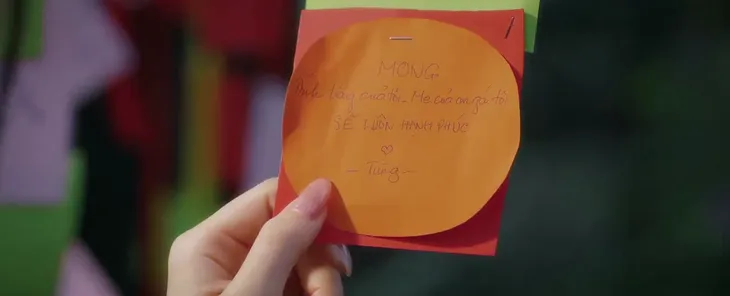 MONG
Ánh trăng của tôi_ Mẹ của con gái tôi
SẼ LUÔN HẠNH PHÚC
♡
– Tùng –